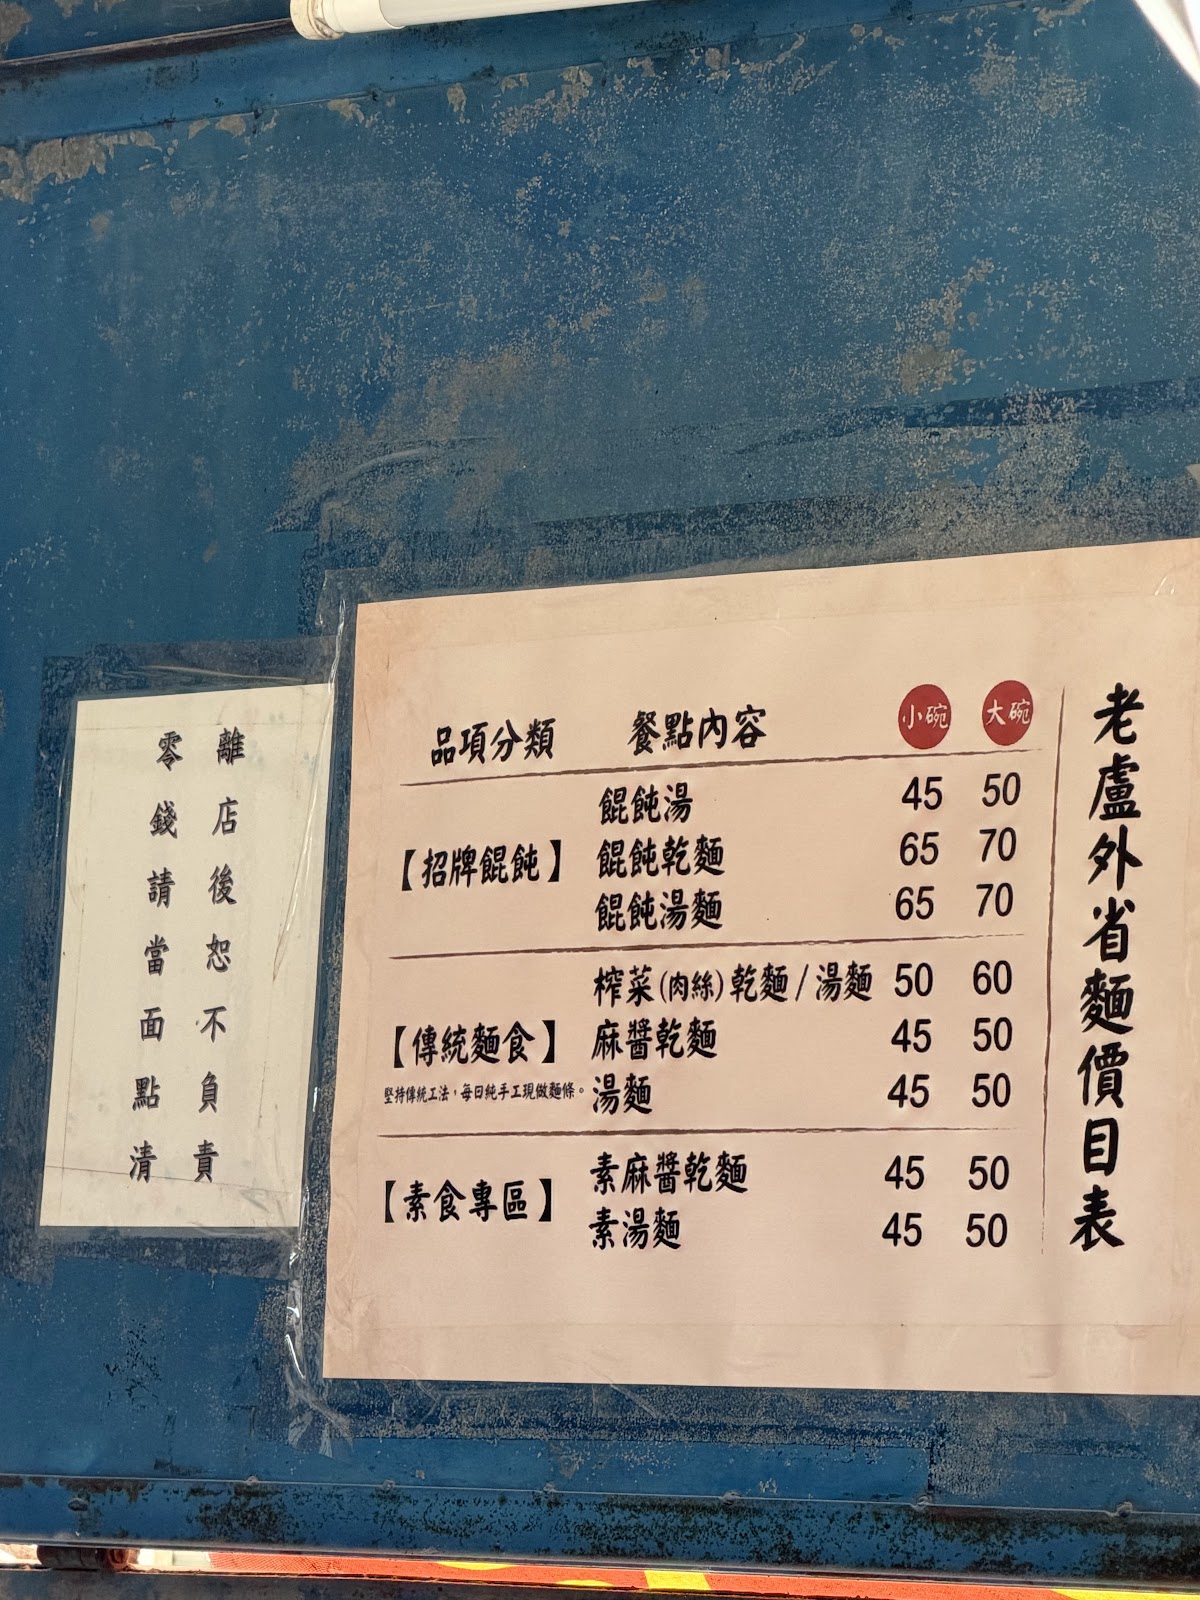 老盧外省麵價目表
品項分類 餐點內容 小碗 大碗
【招牌餛飩】
餛飩湯 45 50
餛飩乾麵 65 70
餛飩湯麵 65 70
【傳統麵食】
堅持傳統工法，每日純手工現做麵條。
榨菜(肉絲)乾麵/湯麵 50 60
麻醬乾麵 45 50
湯麵 45 50
【素食專區】
素麻醬乾麵 45 50
素湯麵 45 50
離店後恕不負責
零錢請當面點清